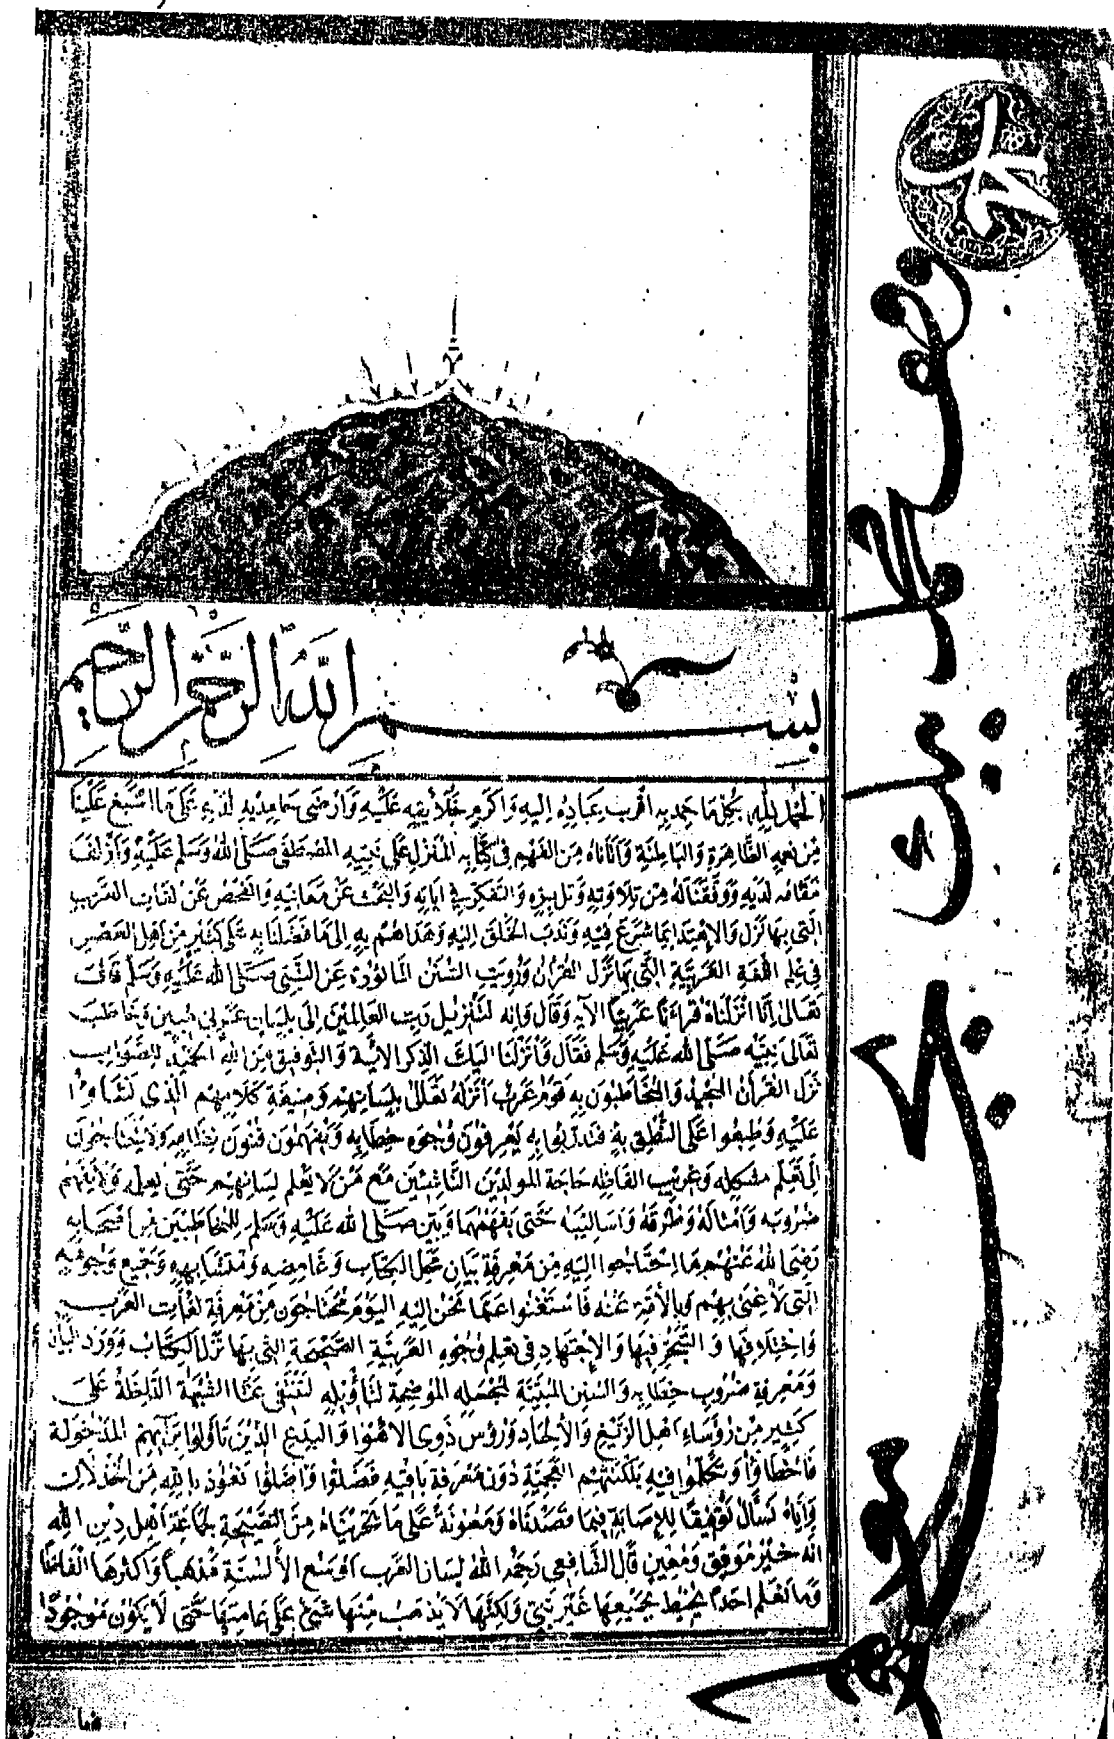 بسم الله الرحمن الرحيم
الحمد لله بكل ما حمده به اقرب عباده اليه واكرم خلائقه عليه وارضى حامديه لديه على ما اسبغ علينا
من نعمه الظاهرة والباطنة واتاناه من الفهم في كتابه المنزل على نبيه المصطفى صلى الله وسلم عليه وازلف
مقامه لديه ووفقنا له من تلاوته وتدبره والتفكر في اياته والبحث عن معانيه والفحص عن لغات العرب
التي بها نزل والاهتداء بما شرع فيه وندب الخلق اليه وهداهم به الى ما فضلنا به على كثير من اهل العصر
في علم اللغة العربية التي بها نزل القران ورويت السنن الماثورة عن النبي صلى الله عليه وسلم قال
تعالى انا انزلناه قراءنا عربيا الآية وقال وانه لتنزيل رب العالمين الى بلسان عربي مبين وخاطب
تعالى نبيه صلى الله عليه وسلم فقال وانزلنا اليك الذكر الاية والتوفيق من الله المجيد للصواب
نزل القران المجيد والمخاطبون به قوم عرب انزله تعالى بلسانهم وصيغة كلامهم الذي نشاوا
عليه وطبعوا على النطق به فتدربوا به يعرفون وجوه خطابه ويفهمون فنون نظامه ولا يحتاجون
الى تعلم مشكله وغريب الفاظه حاجة المولدين الناشئين مع من لا يعلم لسانهم حتى يعلمه ولا يفهم
ضروبه وامثاله وطرقه واساليبه حتى يفهمها وبين صلى الله عليه وسلم للمخاطبين من اصحابه
رضي الله عنهم ما احتاجوا اليه من معرفة بيان مجمل الكتاب وغامضه ومتشابهه وجميع وجوهه
التي لا غنى بهم وبالأمة عنه فاستغنوا عما نحن اليه اليوم محتاجون من معرفة لغات العرب
واختلافها والتبحر فيها والاجتهاد في تعلم وجوه العربية الصحيحة التي بها نزل الكتاب وورد البيان
ومعرفة ضروب خطابه والسنن المبينة لجمله الموضحة لتاويله لتنتفي عنا الشبهة الداخلة على
كثير من رؤساء اهل الزيغ والالحاد ورؤس ذوى الاهواء والبدع الذين تاولوا بآرائهم المدخولة
فاخطاوا وتكلموا فيه بلكنتهم العجمية دون معرفة ثاقبة فضلوا واضلوا نعوذ بالله من الخذلان
واياه نسأل توفيقا للاصابة فيما قصدناه ومعونة على ما تحريناه من النصيحة لجماعة اهل دين الله
انه خير موفق ومعين قال الشافعي رحمه الله لسان العرب اوسع الألسنة مذهبا واكثرها الفاظا
وما نعلم احدا يحيط بجميعها غير نبي ولكنها لا يذهب منها شئ على عامتها حتى لا يكون موجودا